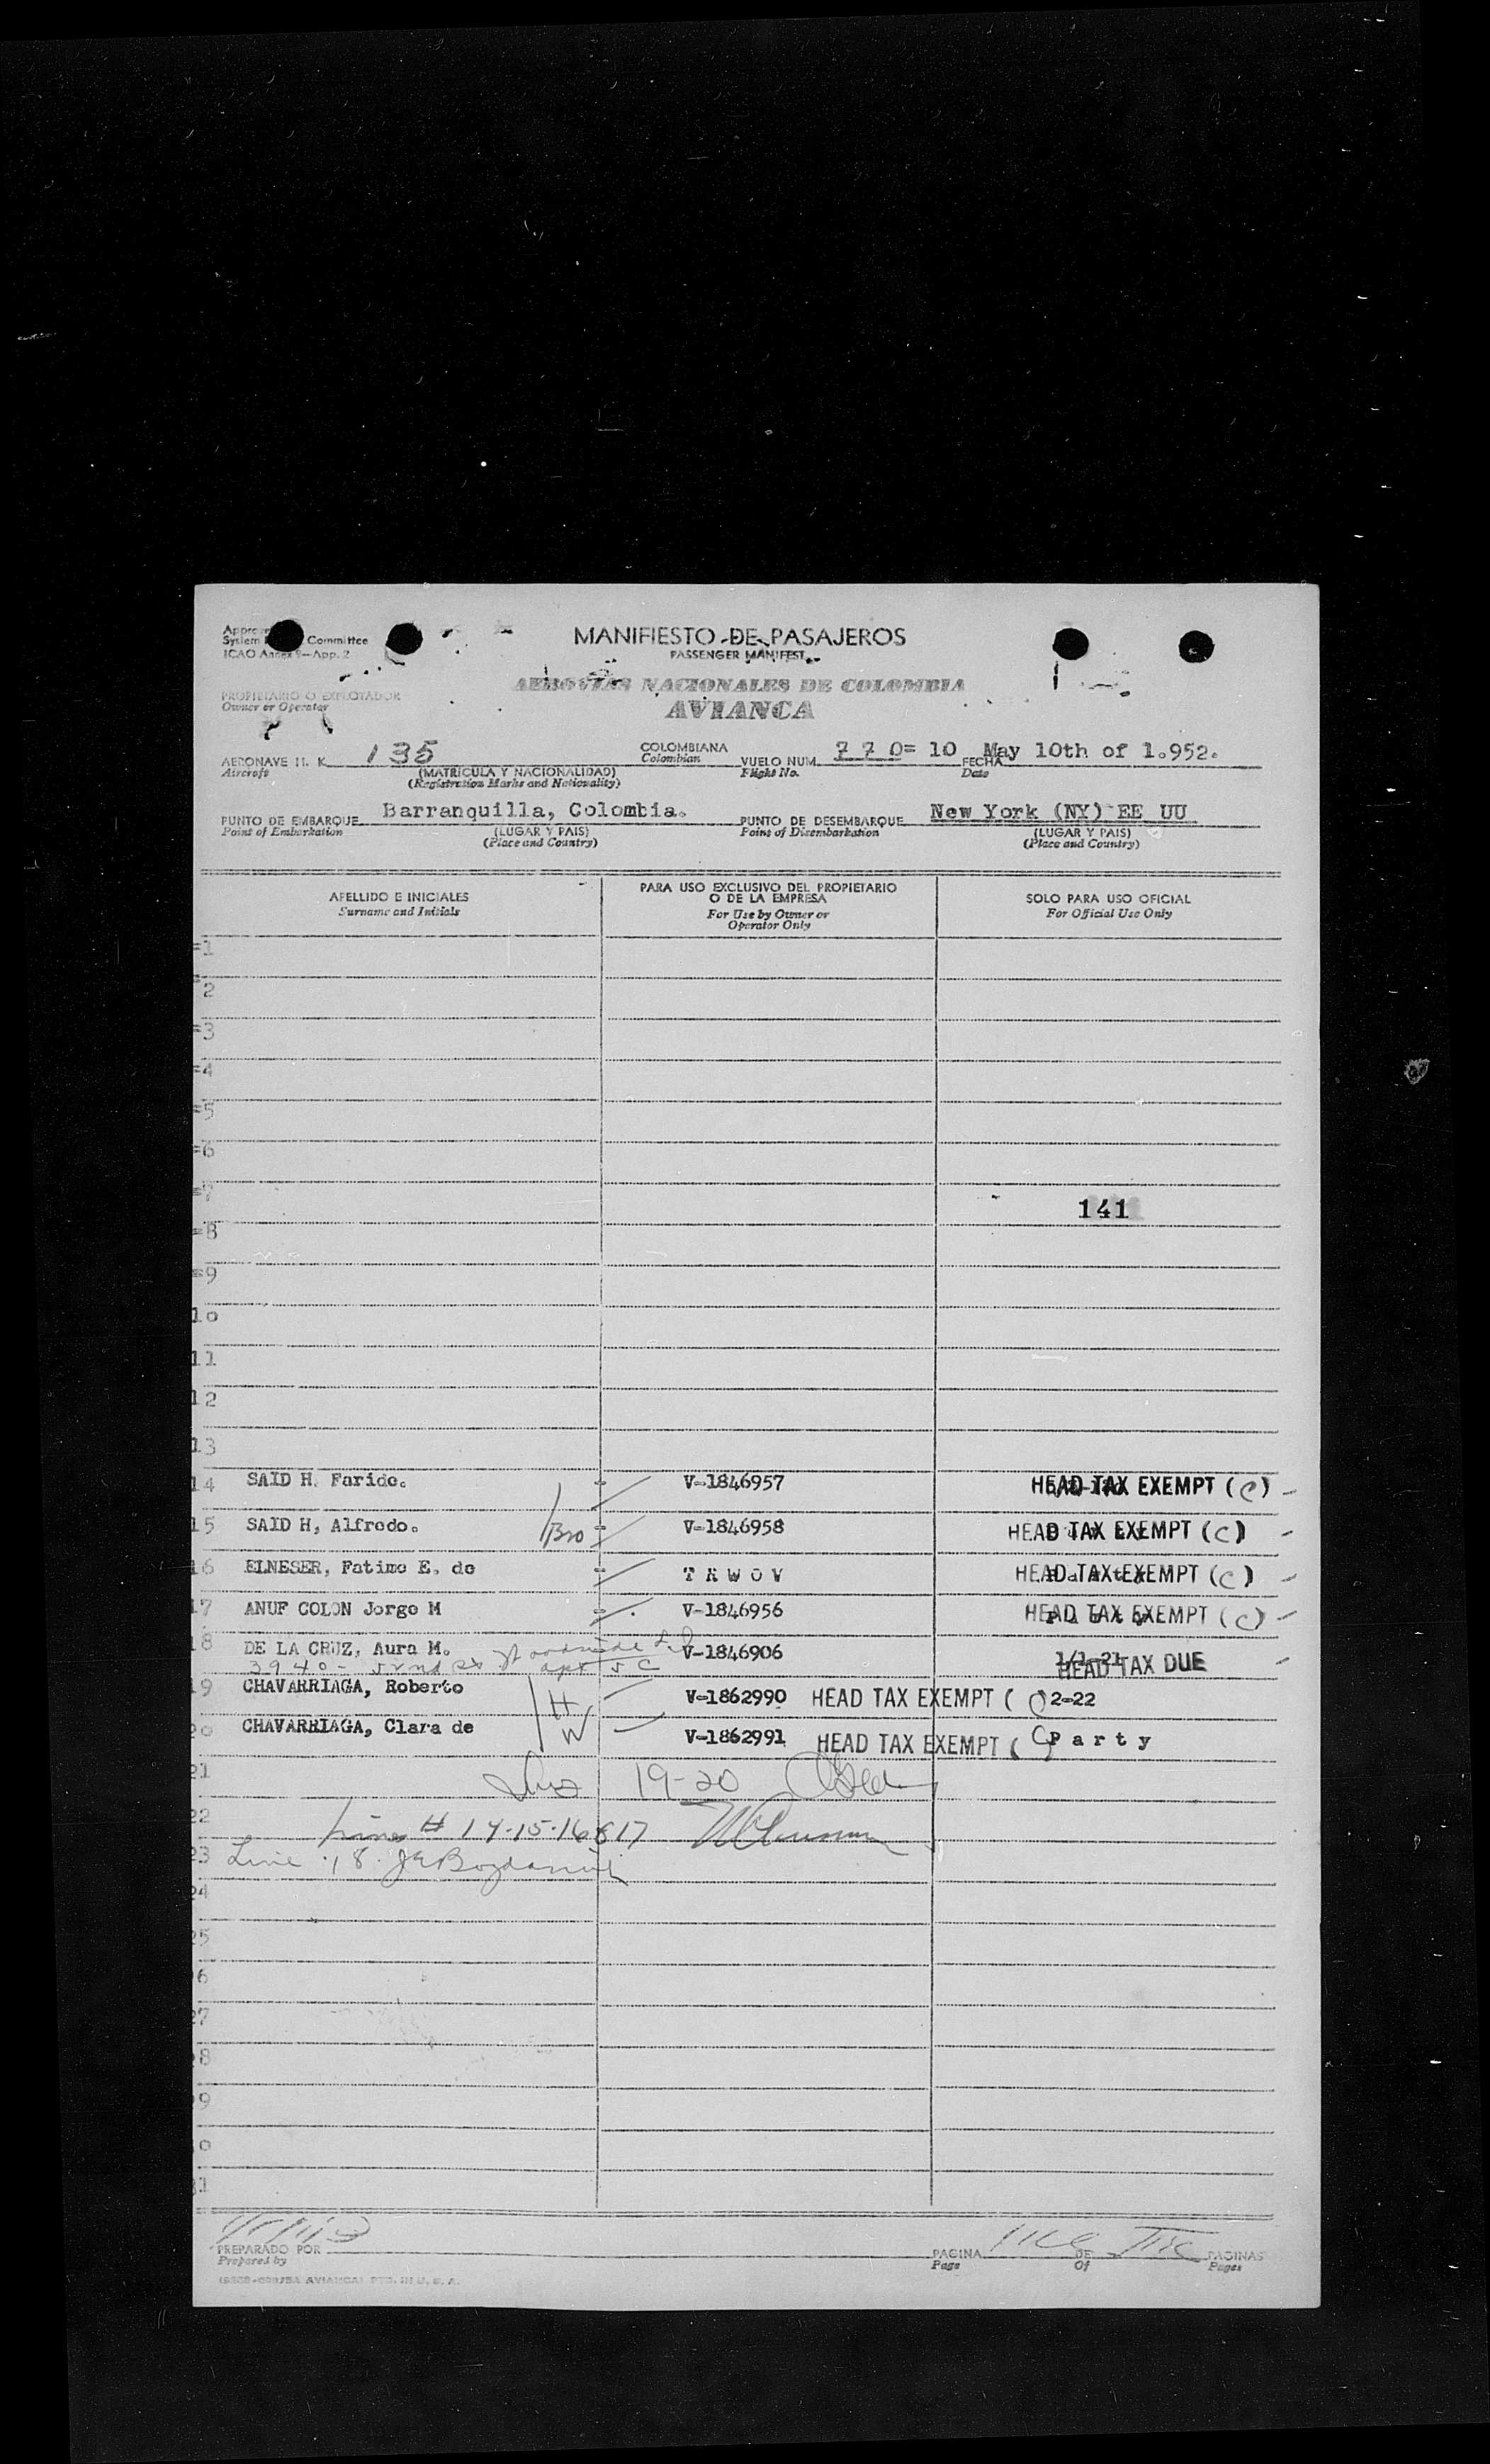 System Committee
ICAO Annex 9—App. 2
MANIFIESTO DE PASAJEROS
PASSENGER MANIFEST
AEROVIAS NACIONALES DE COLOMBIA
AVIANCA
PROPIETARIO O EXPLOTADOR
Owner or Operator
AERONAVE H. K. 135 COLOMBIANA VUELO NUM. 7 7 0= 10 FECHA May 10th of 1.952.
Aircraft (MATRICULA Y NACIONALIDAD) Colombian Flight No. Date
(Registration Marks and Nationality)
PUNTO DE EMBARQUE Barranquilla, Colombia. PUNTO DE DESEMBARQUE New York (NY) EE UU
Point of Embarkation (LUGAR Y PAIS) Point of Disembarkation (LUGAR Y PAIS)
(Place and Country) (Place and Country)
APELLIDO E INICIALES PARA USO EXCLUSIVO DEL PROPIETARIO O DE LA EMPRESA SOLO PARA USO OFICIAL
Surname and Initials For Use by Owner or Operator Only For Official Use Only
=1
=2
=3
=4
=5
=6
=7
141
=8
=9
10
11
12
13
14 SAID H. Farido. V-1846957 HEAD TAX EXEMPT (C)
15 SAID H, Alfredo. Bro V-1846958 HEAD TAX EXEMPT (C)
16 ELNESER, Fatime E. de T R W O V HEAD TAX EXEMPT (C)
17 ANUF COLON Jorge M V-1846956 HEAD TAX EXEMPT (C)
18 DE LA CRUZ, Aura M. V-1846906 1/1-21 HEAD TAX DUE
3940- 52nd st Woodside L.I. apt 5C
19 CHAVARRIAGA, Roberto H V-1862990 HEAD TAX EXEMPT (C) 2-22
20 CHAVARRIAGA, Clara de W V-1862991 HEAD TAX EXEMPT (C) P a r t y
21 19-20
22 Lines # 14-15-16 & 17
23 Line 18
24
25
26
27
28
29
30
31
PREPARADO POR PAGINA DE PAGINAS
Prepared by Page Of Pages